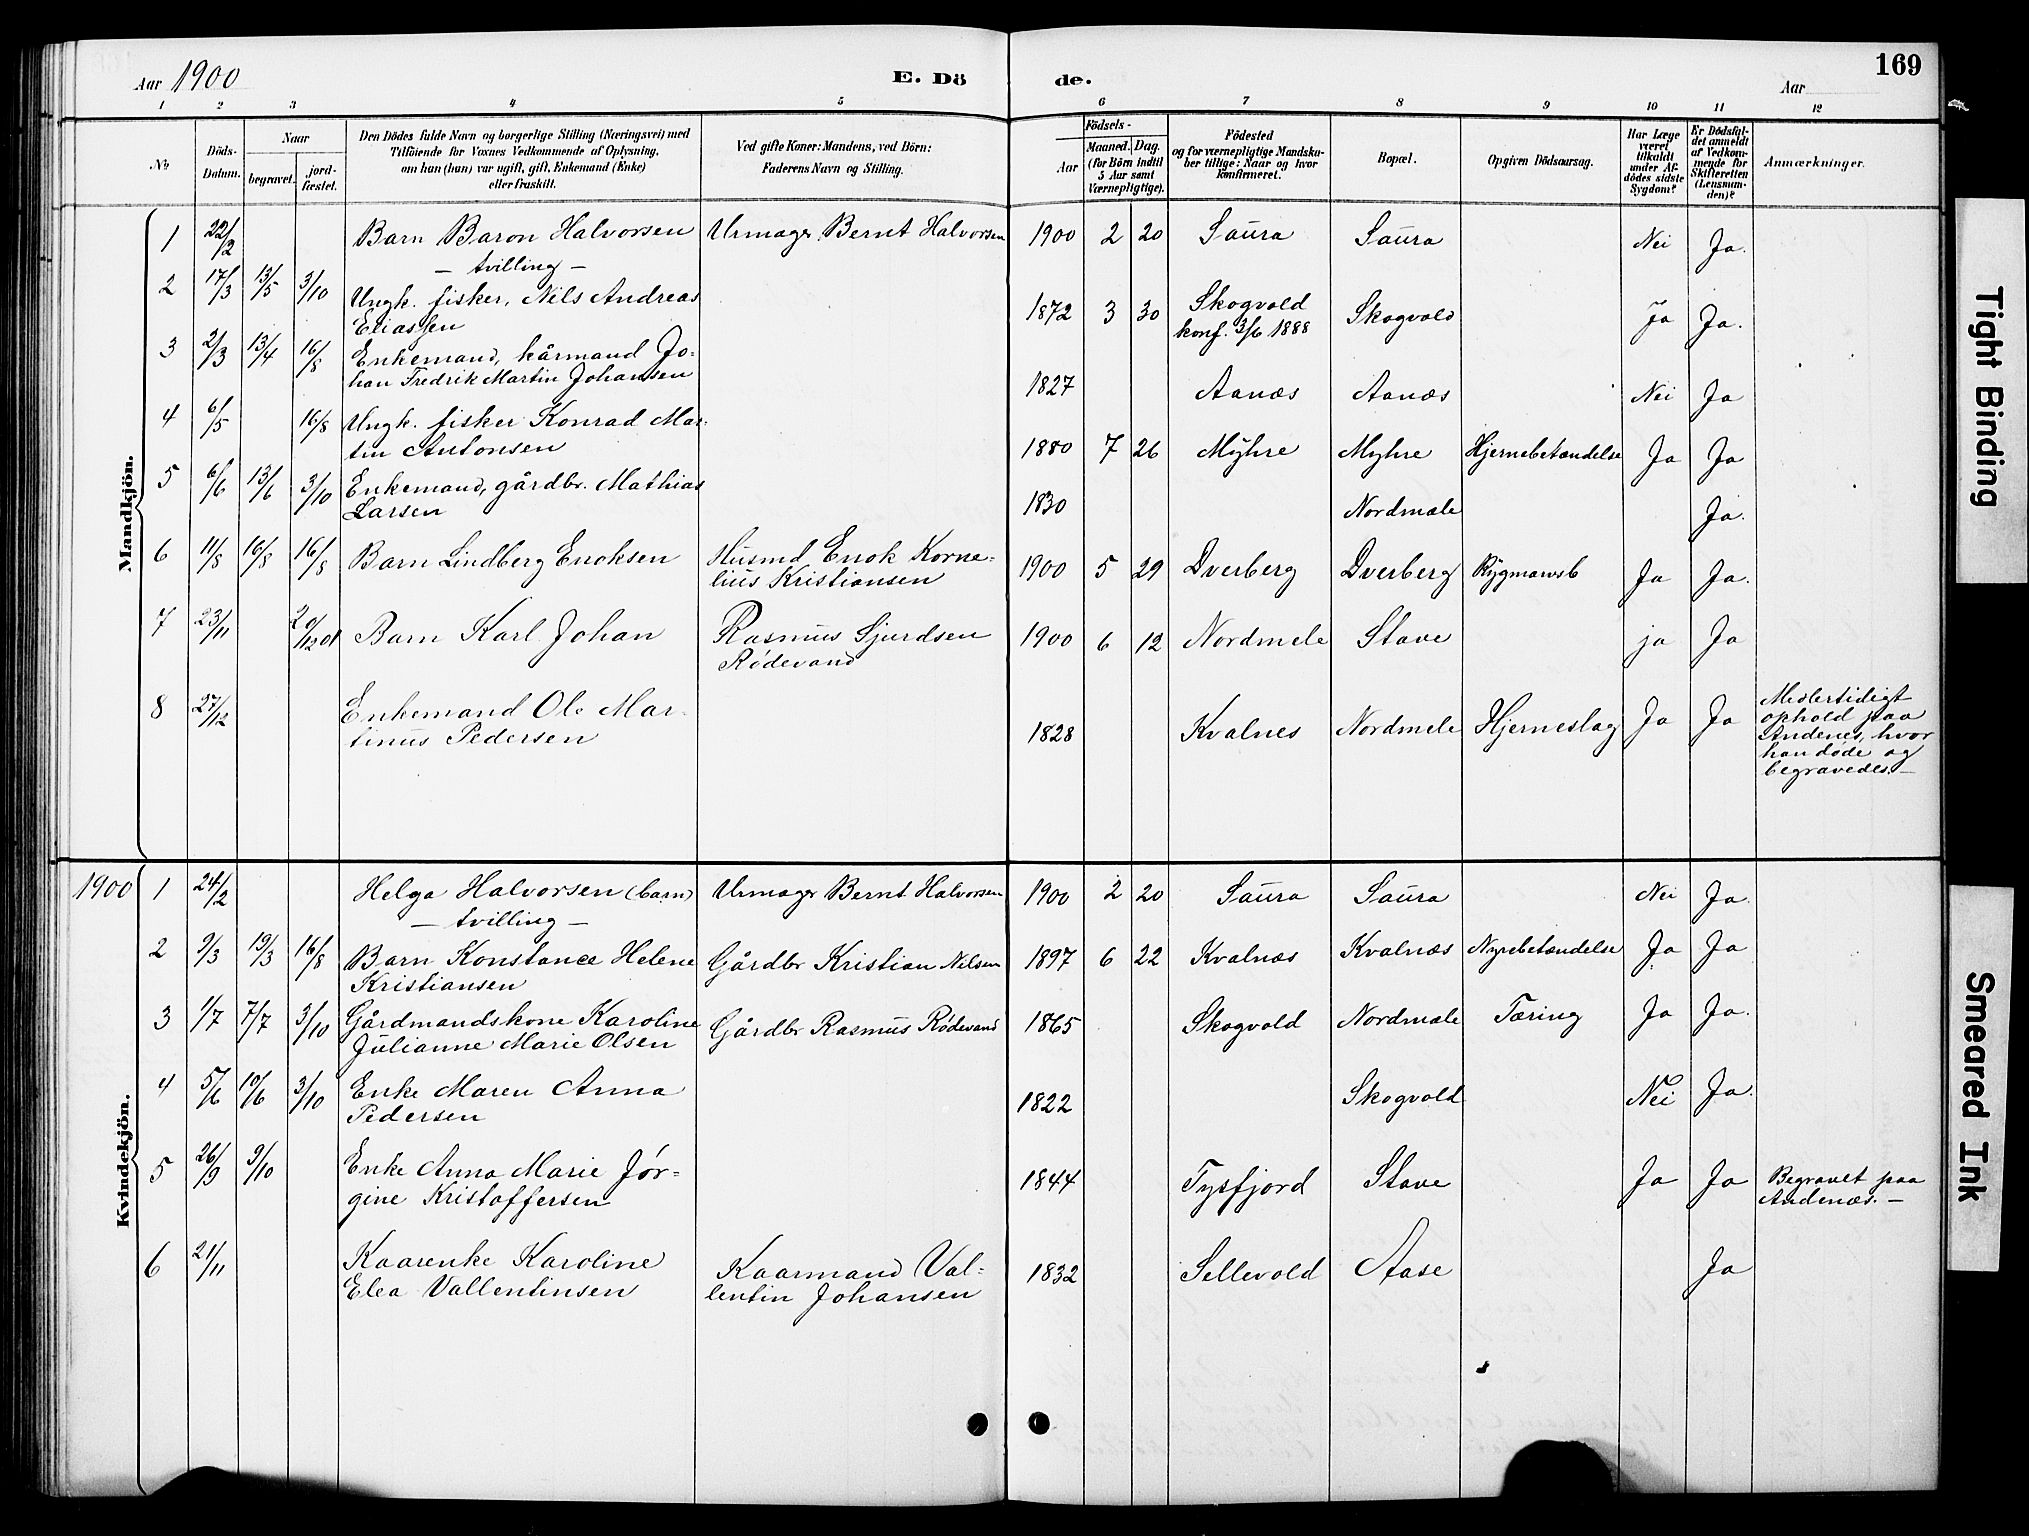 Aar 1900
E. Dö
de.
Aar
169
1 2 3 4 5 6 7 8 9 10 11 12
No
Döds-Datum.
Naar
begravet.
jord-fæstet.
Den Dödes fulde Navn og borgerlige Stilling (Næringsvei) med
Tilföiende for Voxnes Vedkommende af Oplysning,
om han (hun) var ugift, gift, Enkemand (Enke)
eller fraskilt.
Ved gifte Koner: Mandens, ved Börn:
Faderens Navn og Stilling.
Födsels-
Aar
Maaned. Dag.
(for Börn indtil
5 Aar samt
Værnepligtige).
Födested
og for værnepligtige Mandska-
ber tillige: Naar og hvor
konfirmeret.
Bopæl.
Opgiven Dödsaarsag.
Har Læge
været
tilkaldt
under Af-
dödes sidste
Sygdom?
Er Dödsfal-
det anmeldt
af Vedkom-
mende for
Skifteretten
(Lensman-
den)?
Anmærkninger.
Mandkjön.
1 22/2 Barn Baron Halvorsen Urmager Bernt Halvorsen 1900 2 20 Saura Saura Nei Ja.
— tvilling —
2 17/3 13/5 3/10 Ungk. fisker, Nils Andreas 1872 3 30 Skogvold Skogvold Ja Ja.
Eliassen konf. 3/6 1888
3 2/3 13/4 16/8 Enkemand, kårmand Jo-
han Fredrik Martin Johansen 1827 Aanæs Aanæs Nei Ja
4 6/5 16/8 Ungk. fisker Konrad Mar-
tin Antonsen 1880 7 26 Myhre Myhre Hjernebetændelse Ja Ja
5 6/6 13/6 3/10 Enkemand, gårdbr. Mathias
Larsen 1830 Nordmæle Ja.
6 11/8 16/8 16/8 Barn Lindberg Enoksen Husmd Enok Korne-
lius Kristiansen 1900 5 29 Dverberg Dverberg Ja Ja.
7 23/11 20/12 01 Barn Karl Johan Rasmus Sjurdsen 1900 6 12 Nordmele Stave ja Ja
Rødevand
8 27/12 Enkemand Ole Mar-
tinus Pedersen 1828 Kvalnes Nordmele Hjerneslag Ja Ja
Midlertidigt
ophold paa
Andenes, hvor
han døde og
begravedes. —
Kvindekjön.
1900 1 24/2 Helga Halvorsen (barn) Urmager Bernt Halvorsen 1900 2 20 Saura Saura Nei Ja.
— tvilling —
2 9/3 19/3 16/8 Barn Konstance Helene Gårdbr Kristian Nilsen 1897 6 22 Kvalnæs Kvalnæs Nyrebetændelse Ja Ja
Kristiansen
3 1/7 7/7 3/10 Gårdmandskone Karoline Gårdbr Rasmus Rødevand 1865 Skogvold Nordmæle Tæring Ja Ja.
Julianne Marie Olsen
4 5/6 10/6 3/10 Enke Maren Anna 1822 Skogvold Nei Ja.
Pedersen
5 26/9 9/10 Enke Anna Marie Jør-
gine Kristoffersen 1844 Tysfjord Stave Ja Ja Begravet paa
Andenæs. —
6 21/11 Kaarenke Karoline Kaarmand Val-
Elea Vallentinsen lentin Johansen 1832 Sellevold Aase Ja
Tight Binding
Smeared Ink